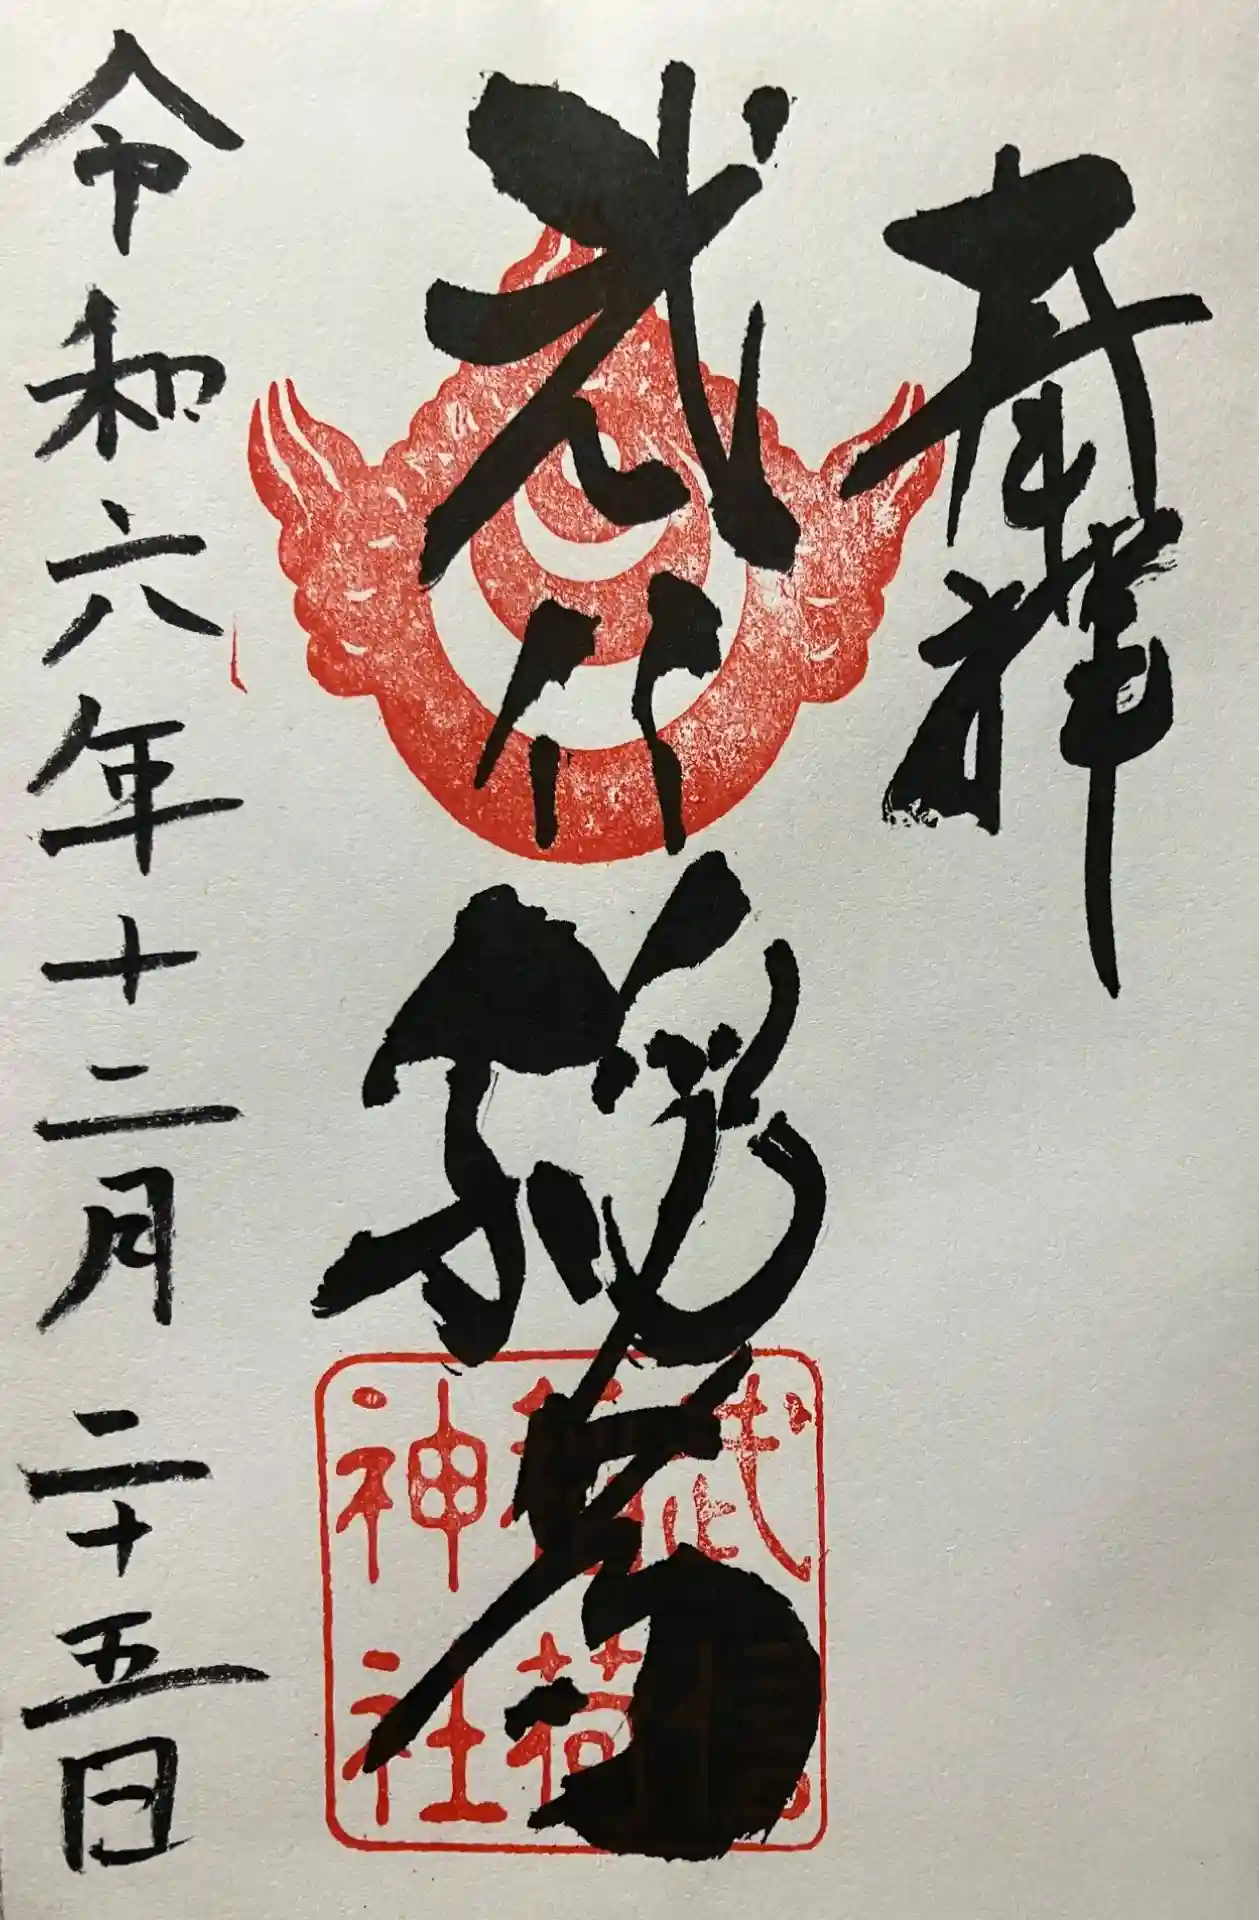 奉拝
武信稲荷
武信
稲荷
神社
令和六年十二月二十五日